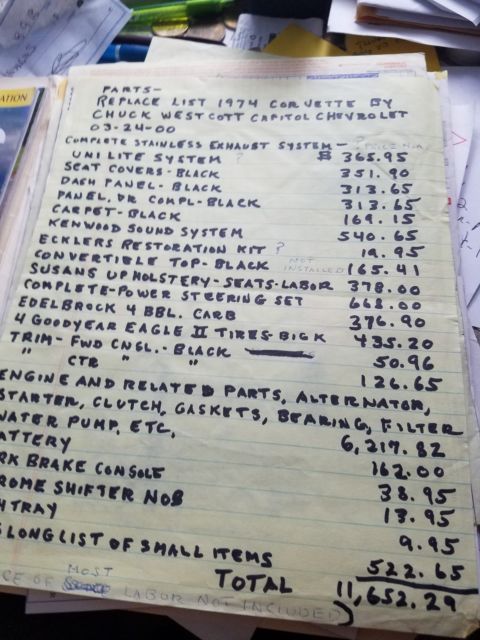 PARTS-
REPLACE LIST 1974 CORVETTE BY
CHUCK WESTCOTT CAPITOL CHEVROLET
03-24-00
COMPLETE STAINLESS EXHAUST SYSTEM- ?
UNILITE SYSTEM ? $ 365.95
SEAT COVERS-BLACK 351.90
DASH PANEL-BLACK 313.65
PANEL, DR COMPL-BLACK 313.65
CARPET-BLACK 169.15
KENWOOD SOUND SYSTEM 540.65
ECKLERS RESTORATION KIT ? 19.95
CONVERTIBLE TOP-BLACK NOT INSTALLED 165.41
SUSANS UPHOLSTERY-SEATS-LABOR 378.00
COMPLETE-POWER STEERING SET 668.00
EDELBROCK 4 BBL. CARB 376.90
4 GOODYEAR EAGLE II TIRES-BIGK 435.20
TRIM-FWD CNGL.-BLACK 50.96
" CTR " " 126.65
ENGINE AND RELATED PARTS, ALTERNATOR,
STARTER, CLUTCH, GASKETS, BEARING, FILTER
WATER PUMP, ETC, 6,217.82
ATTERY 162.00
RK BRAKE CONSOLE 38.95
ROME SHIFTER NOB 13.95
HTRAY 9.95
S LONG LIST OF SMALL ITEMS 522.65
TOTAL 11,652.29
CE OF MOST LABOR NOT INCLUDED)
ATION